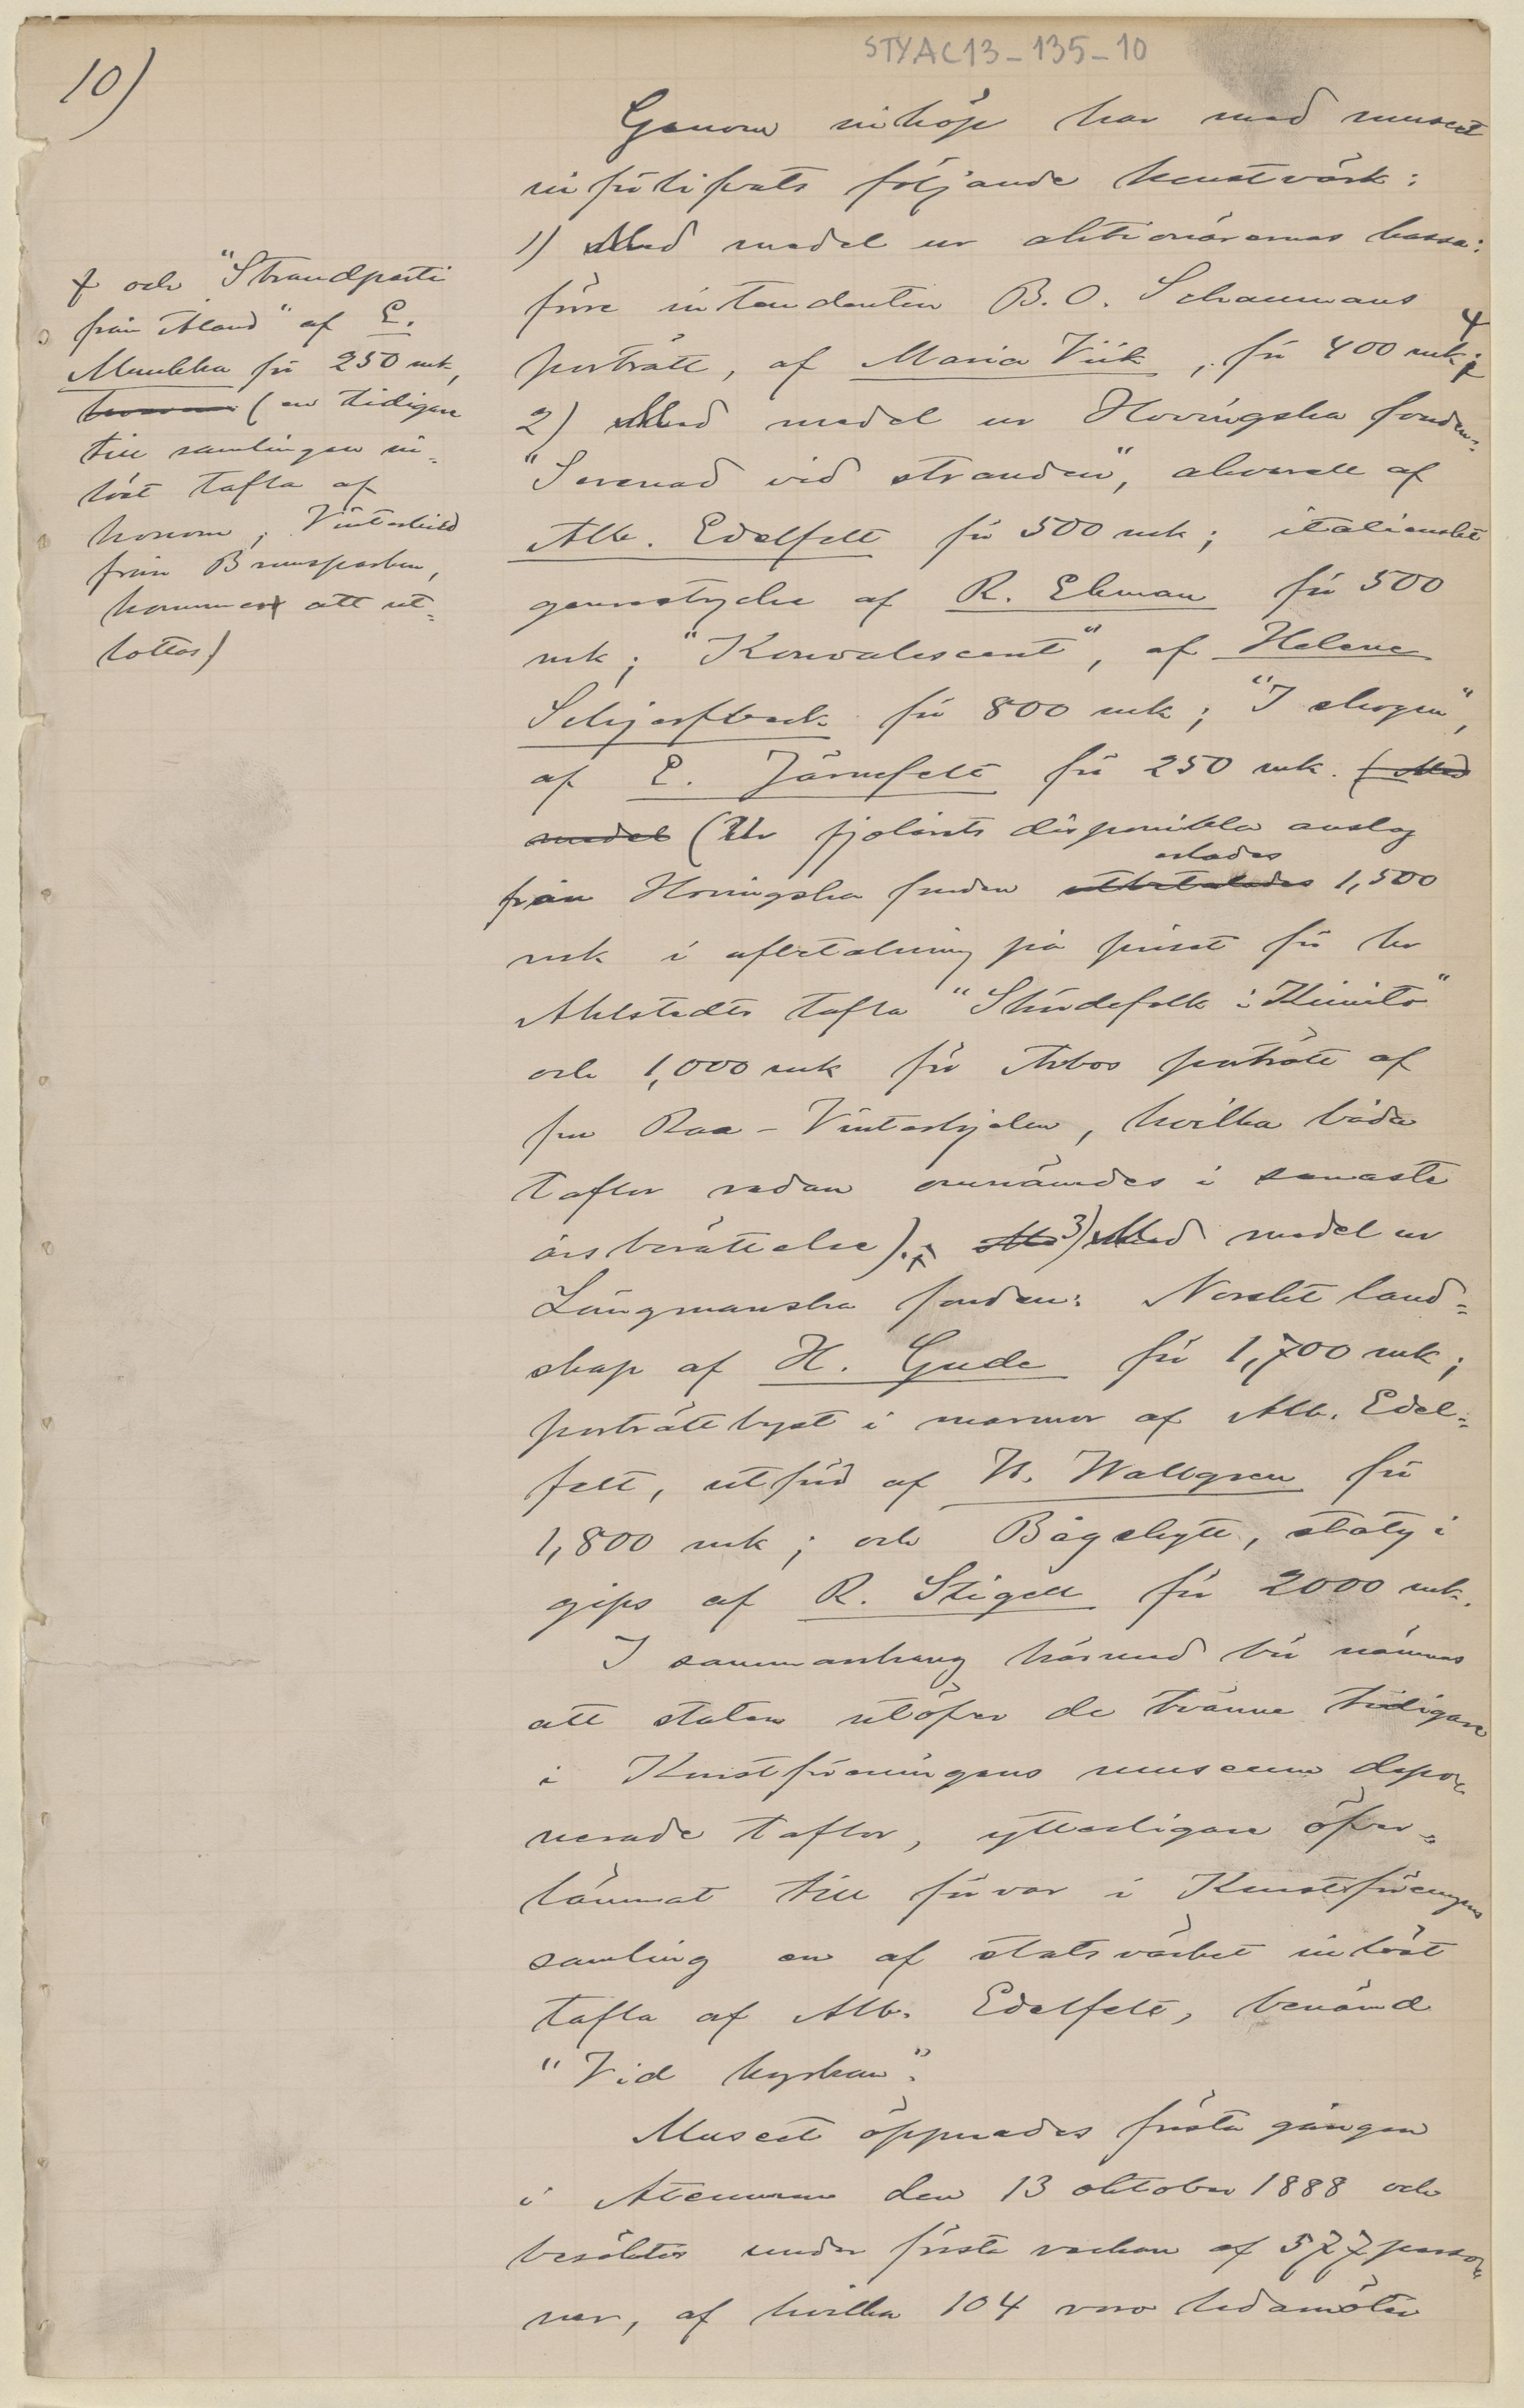 STYAC13-135-10
10)
Genom inköp har med museet
införlifvats följande konstvärk:
1) Med medel ur aktionärernas kassa:
förre intendenten B. O. Schaumans
porträtt, af Maria Wiik, för 400 mk;
2) Med medel ur Hovingska fonden:
"Serenad vid stranden", akvarell af
Alb. Edelfelt för 500 mk; italienskt
genrestycke af R. Ekman för 500
mk; "Konvalescent", af Helene
Schjerfbeck för 800 mk; "I skogen",
af E. Järnefelt för 250 mk. (Med
medel (Ur fjolårets disponibla anslag
från Hovingska fonden utbetalades erlades 1,500
mk i afbetalning på priset för hr
Ahlstedts tafla "Skördefolk i Kimito"
och 1,000 mk för Arbos porträtt af
fru Raa-Winterhjelm, hvilka båda
taflor redan omnämdes i senaste
årsberättelse).; 3) Med medel ur
Längmanska fonden: Norskt land=
skap af H. Gude för 1,700 mk;
porträttbyst i marmor af Alb. Edel=
felt, utförd af W. Wallgren för
1,800 mk; och Bågskytt, staty i
gips af R. Stigell för 2000 mk.
I sammanhang härmed bör nämnas
att staten utöfver de tvänne tidigare
i Konstföreningens museum depo=
nerade taflor, ytterligare öfver=
lämnat till förvar i Konstföreningens
samling en af statsvärket inlöst
tafla af Alb. Edelfelt, benämd
"Vid kyrkan".
Museet öppnades första gången
i Ateneum den 13 oktober 1888 och
besöktes under första veckan af 577 perso=
ner, af hvilka 104 voro ledamöter
och "Strandparti
från Åland" af E.
Munkka för 250 mk,
(en tidigare
till samlingen in=
löst tafla af
honom, Vinterbild
från Brunsparken,
kommer att ut=
lottas)